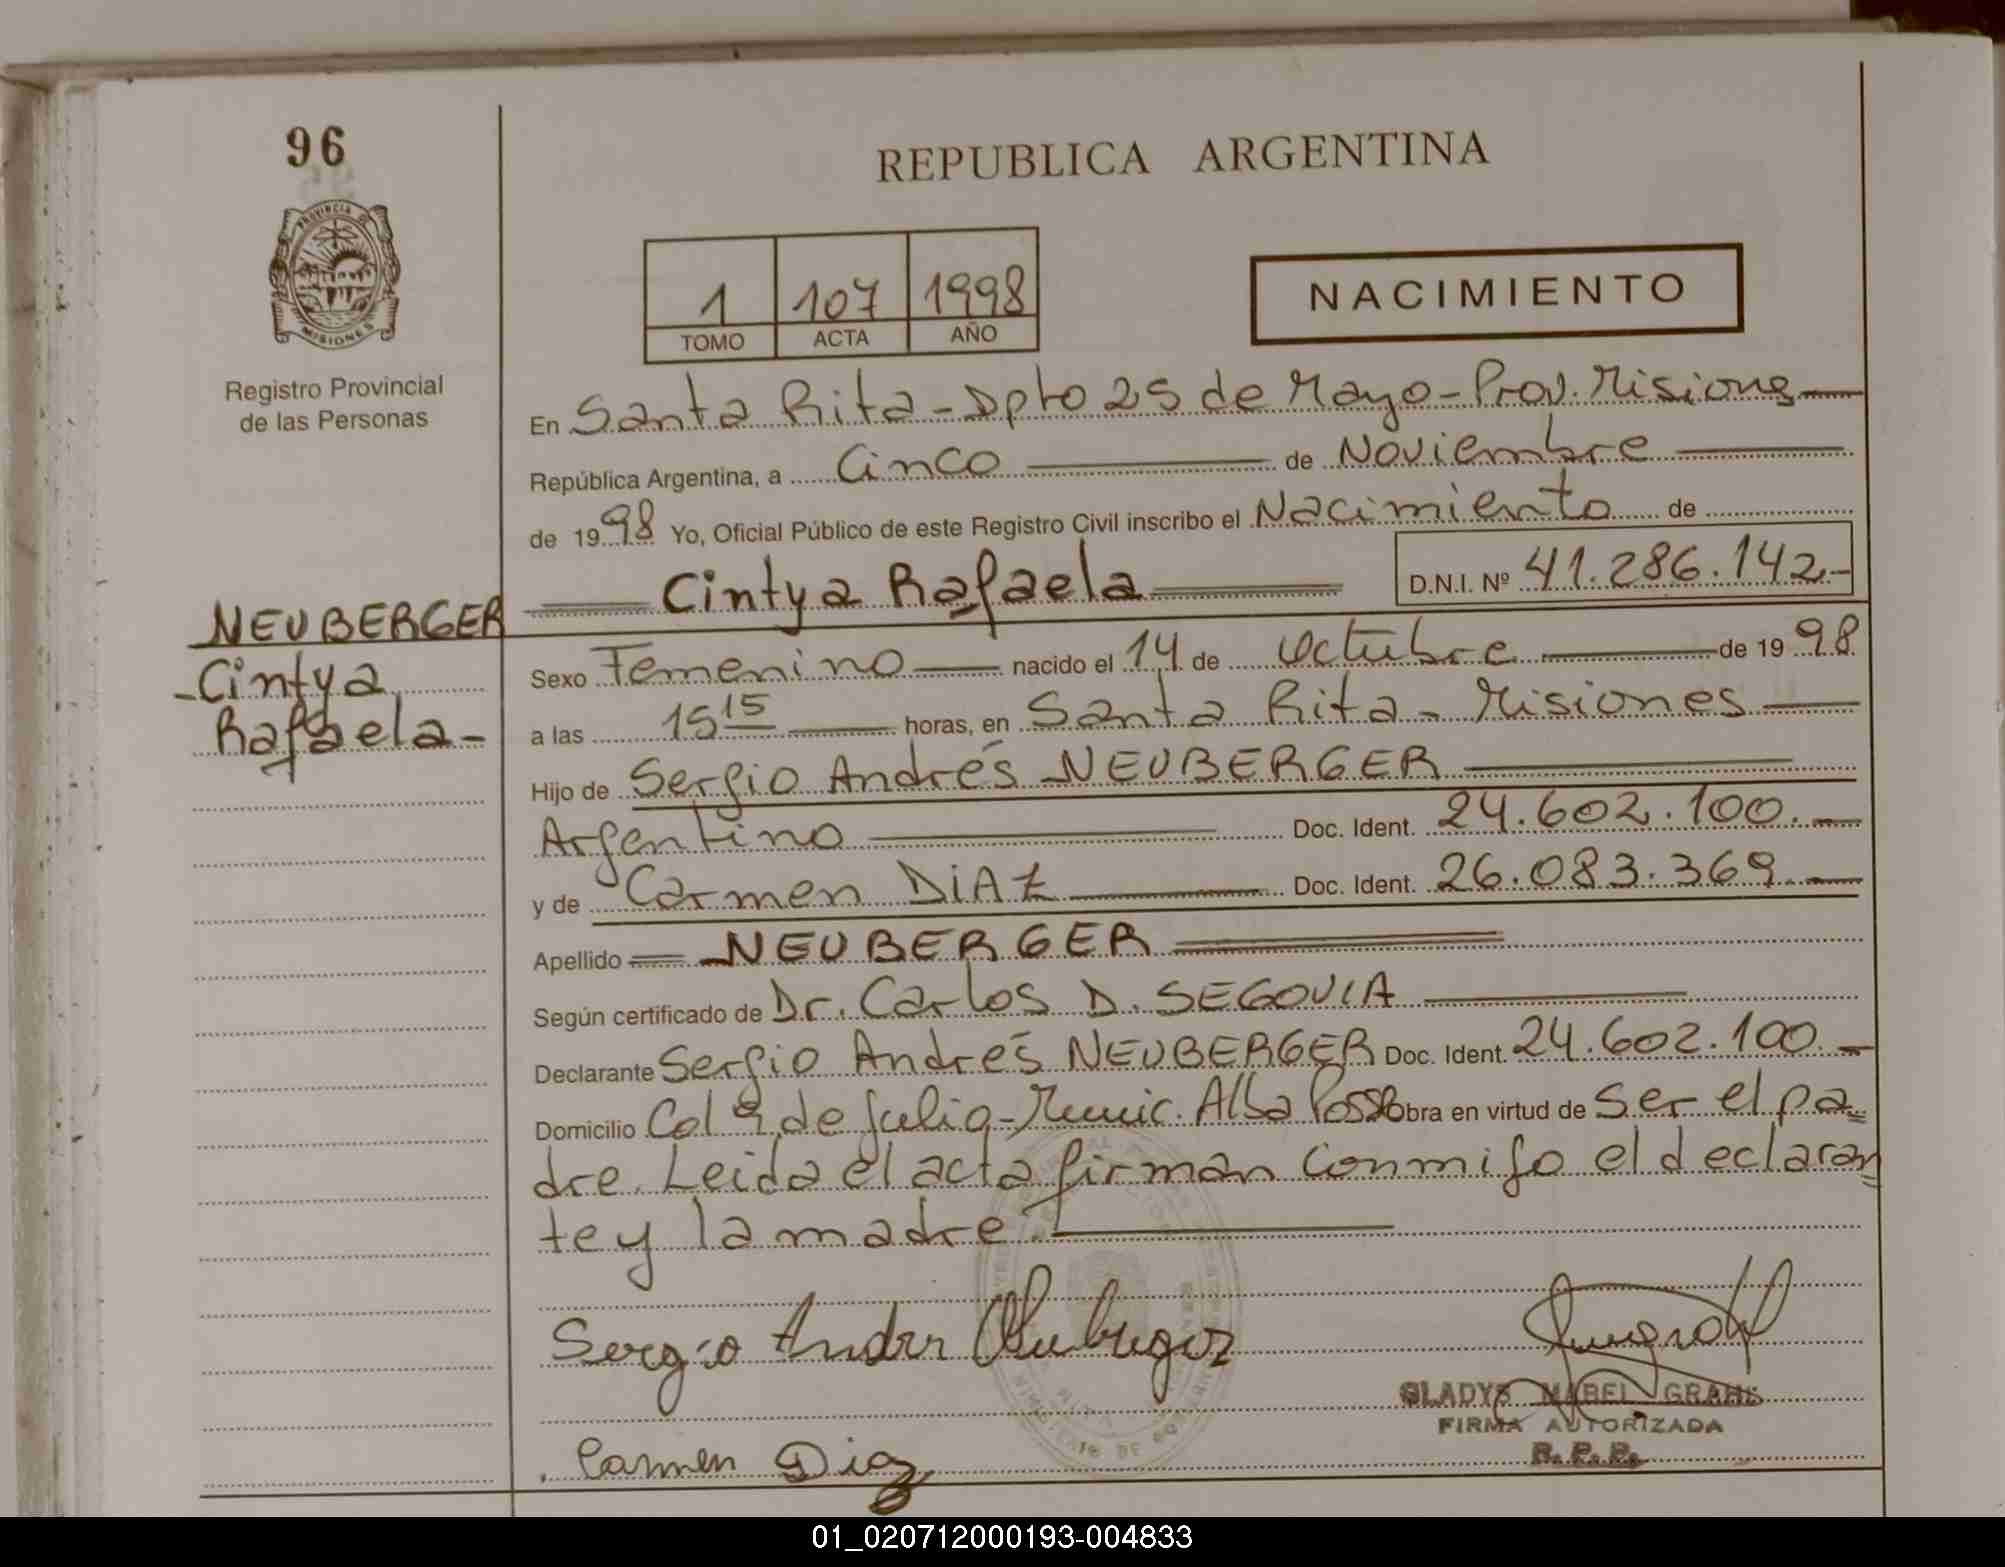 96
PROVINCIA DE
MISIONES
Registro Provincial
de las Personas
NEUBERGER
-Cintya
Rafaela-
REPUBLICA ARGENTINA
1 107 1998
TOMO ACTA AÑO
NACIMIENTO
En Santa Rita-Dpto 25 de Mayo-Prov. Misiones
República Argentina, a Cinco de Noviembre
de 1998 Yo, Oficial Público de este Registro Civil inscribo el Nacimiento de
Cintya Rafaela D.N.I. Nº 41.286.142.-
Sexo Femenino nacido el 14 de Octubre de 1998
a las 15 15 horas, en Santa Rita - Misiones
Hijo de Sergio Andrés NEUBERGER
Argentino Doc. Ident. 24.602.100.-
y de Carmen DIAZ Doc. Ident. 26.083.369.-
Apellido NEUBERGER
Según certificado de Dr. Carlos D. SEGOVIA
Declarante Sergio Andrés NEUBERGER Doc. Ident. 24.602.100.-
Domicilio Col 9 de Julio-Munic. Alba Posse Obra en virtud de ser el pa=
dre. Leida el acta firman conmigo el declaran=
te y la madre.
Sergio Andres Neuberger
GLADYS MABEL GRAHL
FIRMA AUTORIZADA
R. P. P.
Carmen Diaz
01_020712000193-004833